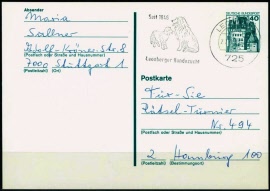 Absender
Maria
Sallner
Wolf-Kröner-Str. 8
(Straße und Hausnummer oder Postfach)
7000 Stuttgart 1
(Postleitzahl) (Ort)
Seit 1846
Leonberger Hunderasse
LE
725
DEUTSCHE BUNDESPOST
40
Postkarte
Für-Sie
Rätsel-Turnier
Nr. 494
(Straße und Hausnummer oder Postfach)
2 Hamburg 100
(Postleitzahl) (Bestimmungsort)